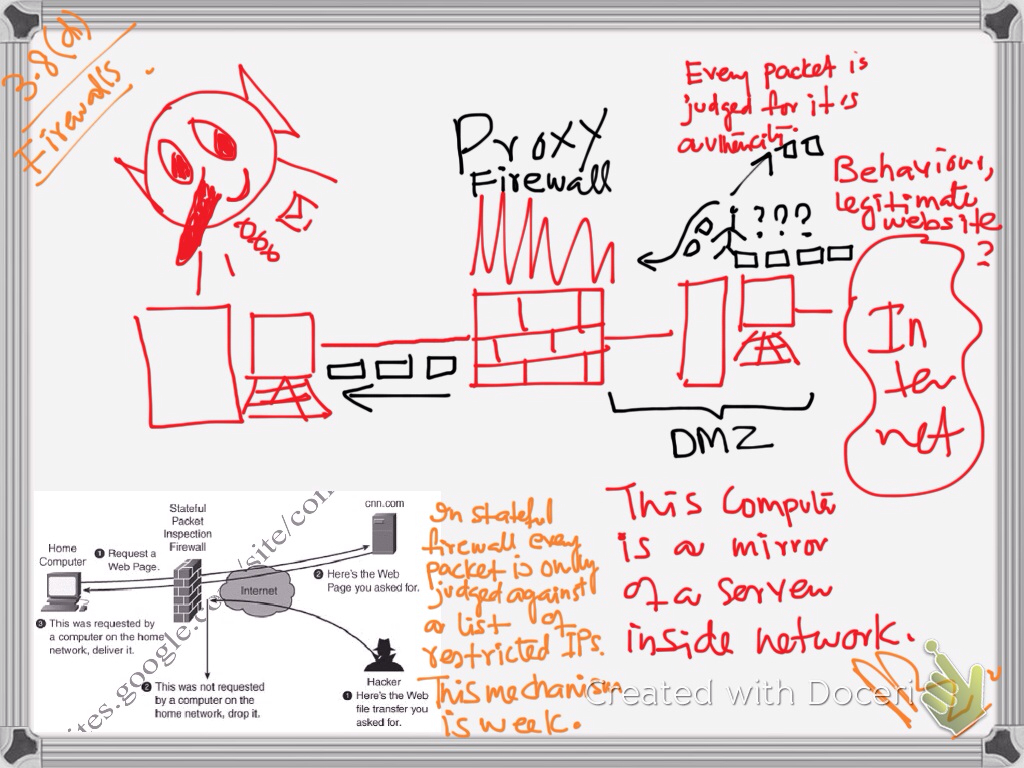 3.8(d)
Firewalls
Proxy
Firewall
Every packet is
judged for it is
authenticity.
Behaviour,
legitimate
website
?
???
In
ter
net
DMZ
Stateful
Packet
Inspection
Firewall
cnn.com
Home
Computer
1 Request a
Web Page.
Internet
2 Here's the Web
Page you asked for.
3 This was requested by
a computer on the home
network, deliver it.
2 This was not requested
by a computer on the
home network, drop it.
Hacker
1 Here's the Web
file transfer you
asked for.
ites.google.co
/site/con
In stateful
firewall every
packet is only
judged against
a list of
restricted IPs.
This mechanism
is week.
This Computer
is a mirror
of a server
inside network.
Created with Doceri